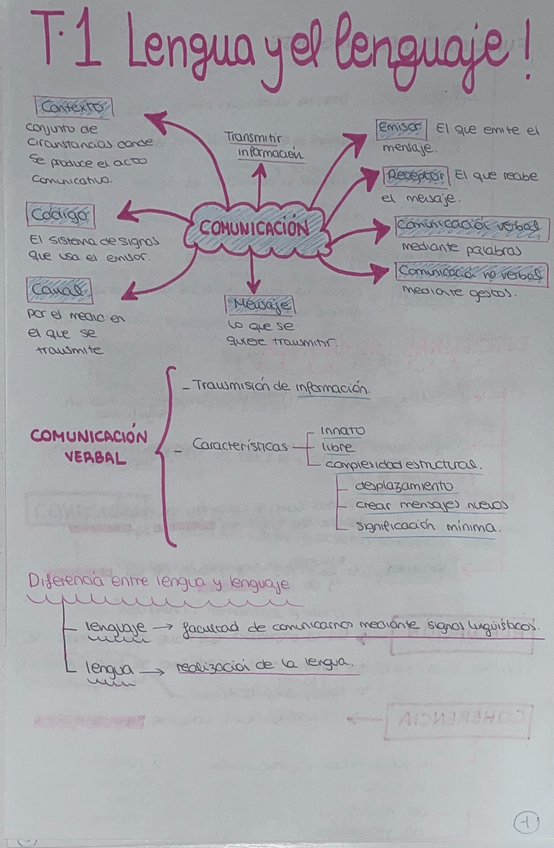 T.1 Lengua y el lenguaje!
Contexto
conjunto de
circunstancias donde
se produce el acto
comunicativo.
Código
El sistema de signos
que usa el emisor.
Canal
por el medio en
el que se
transmite
Transmitir
información
COMUNICACIÓN
Mensaje
lo que se
quiere transmitir.
Emisor El que emite el
mensaje.
Receptor El que recibe
el mensaje.
Comunicación verbal
mediante palabras
Comunicación no verbal
mediante gestos.
COMUNICACIÓN
VERBAL
- Transmisión de información.
- Características
innato
libre
complejidad estructural.
desplazamiento
crear mensajes nuevos
significación mínima.
Diferencia entre lengua y lenguaje
lenguaje → facultad de comunicarnos mediante signos lingüísticos.
lengua → realización de la lengua.
COHERENCIA
1